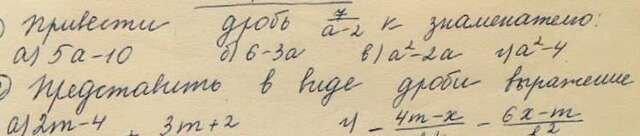 ) Привести дробь 7/a-2 к знаменателю:
а) 5a-10 б) 6-3a в) a²-2a г) a²-4
) Представить в виде дроби выражение
а) 2m-4 + 3m+2 г) - 4m-x - 6x-m